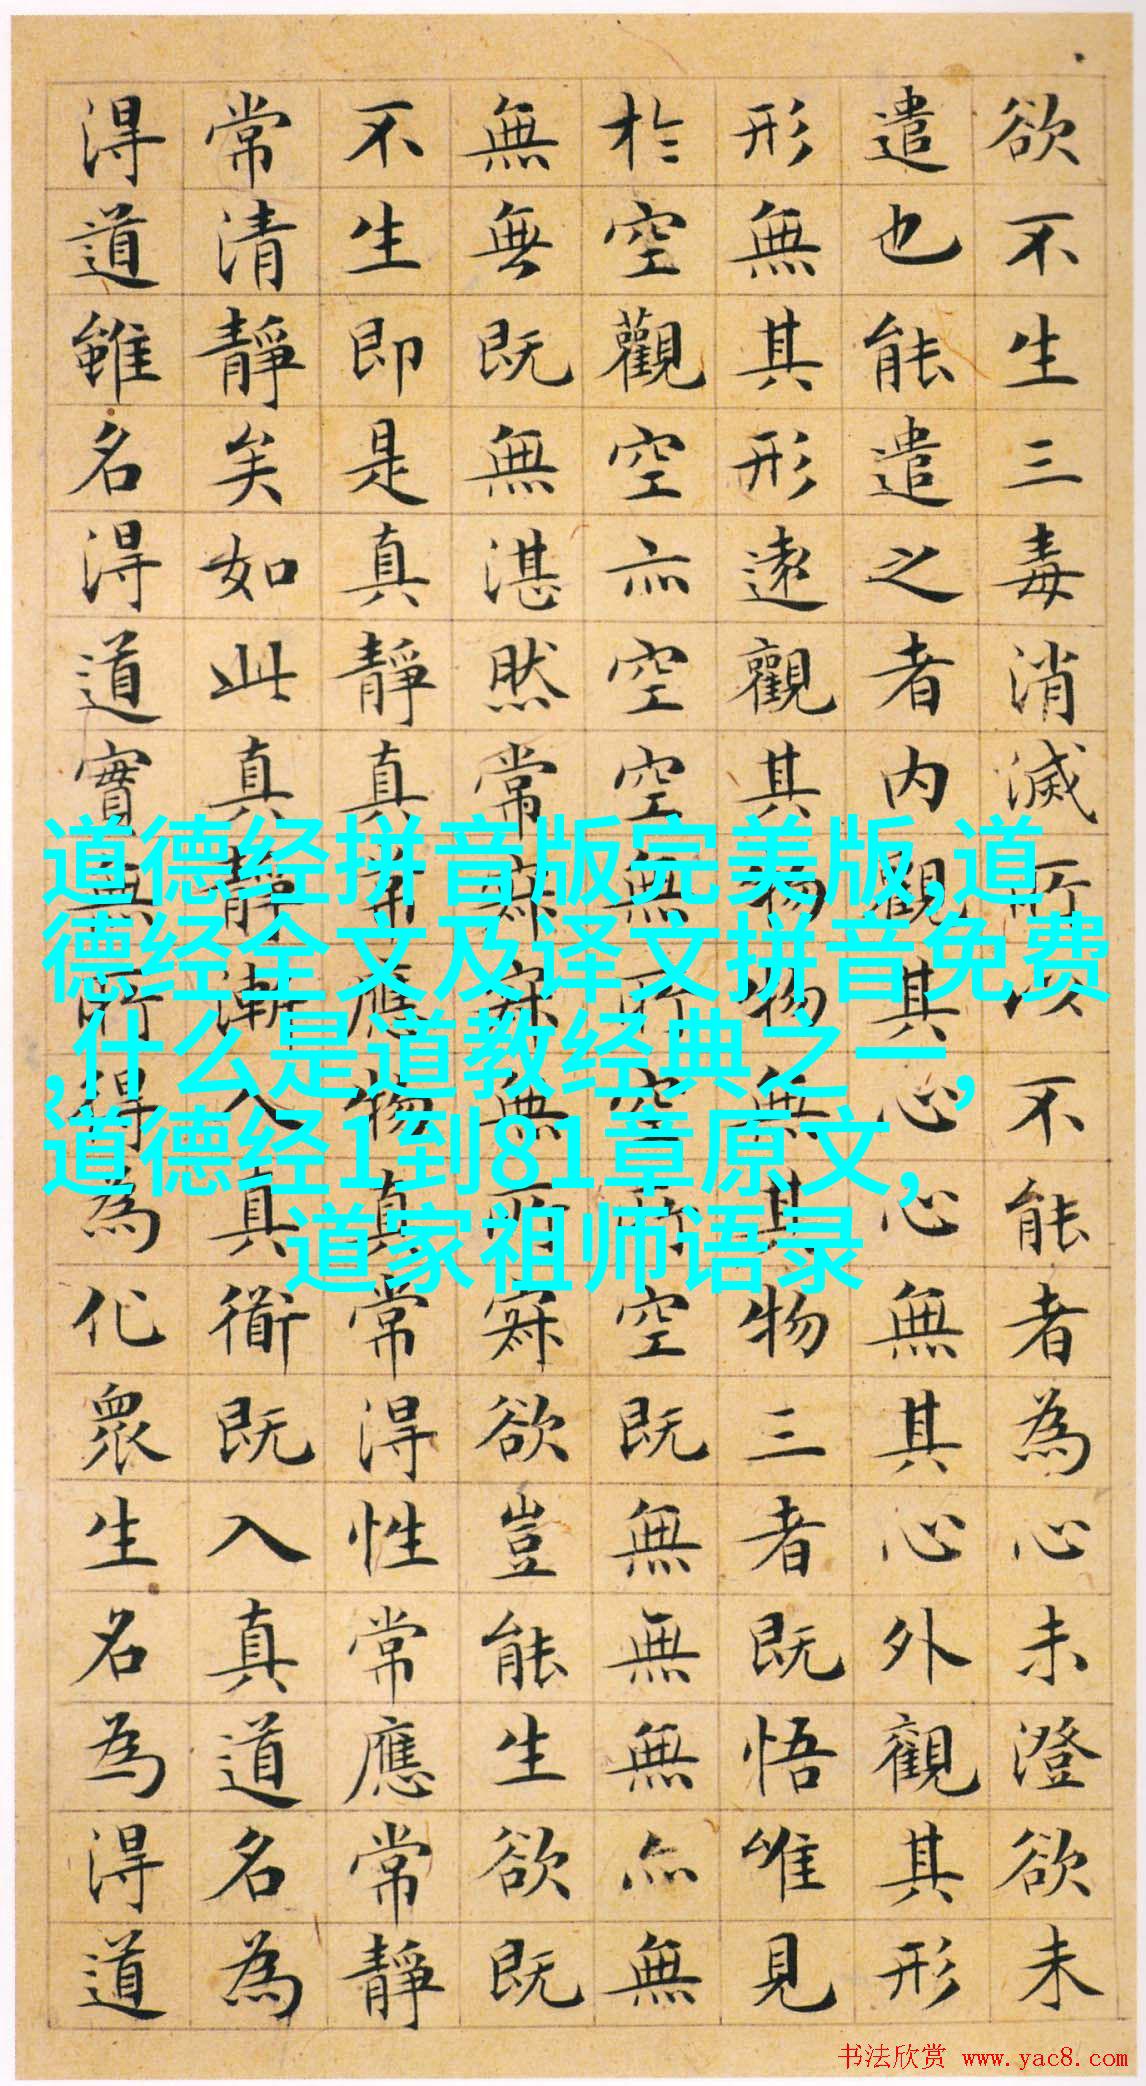 欲不生三毒消滅所以不能者為心未澄欲未
遣也能遣之者内觀其心心無其心外觀其形
形無其形遠觀其物物無其物三者既悟唯見
於空觀空亦空空無所空所空既無無無亦無
無無既無湛然常寂寂無所寂欲豈能生欲既
不生即是真靜真常應物真常得性常應常靜
常清靜矣如此真靜漸入真衜既入真道名為
得道雖名得道實無所得為化眾生名為得道
道德经拼音版完美版,道
德经全文及译文拼音免费
,什么是道教经典之一,
道德经1到81章原文,
道家祖师语录
书法欣赏 www.yac8.com